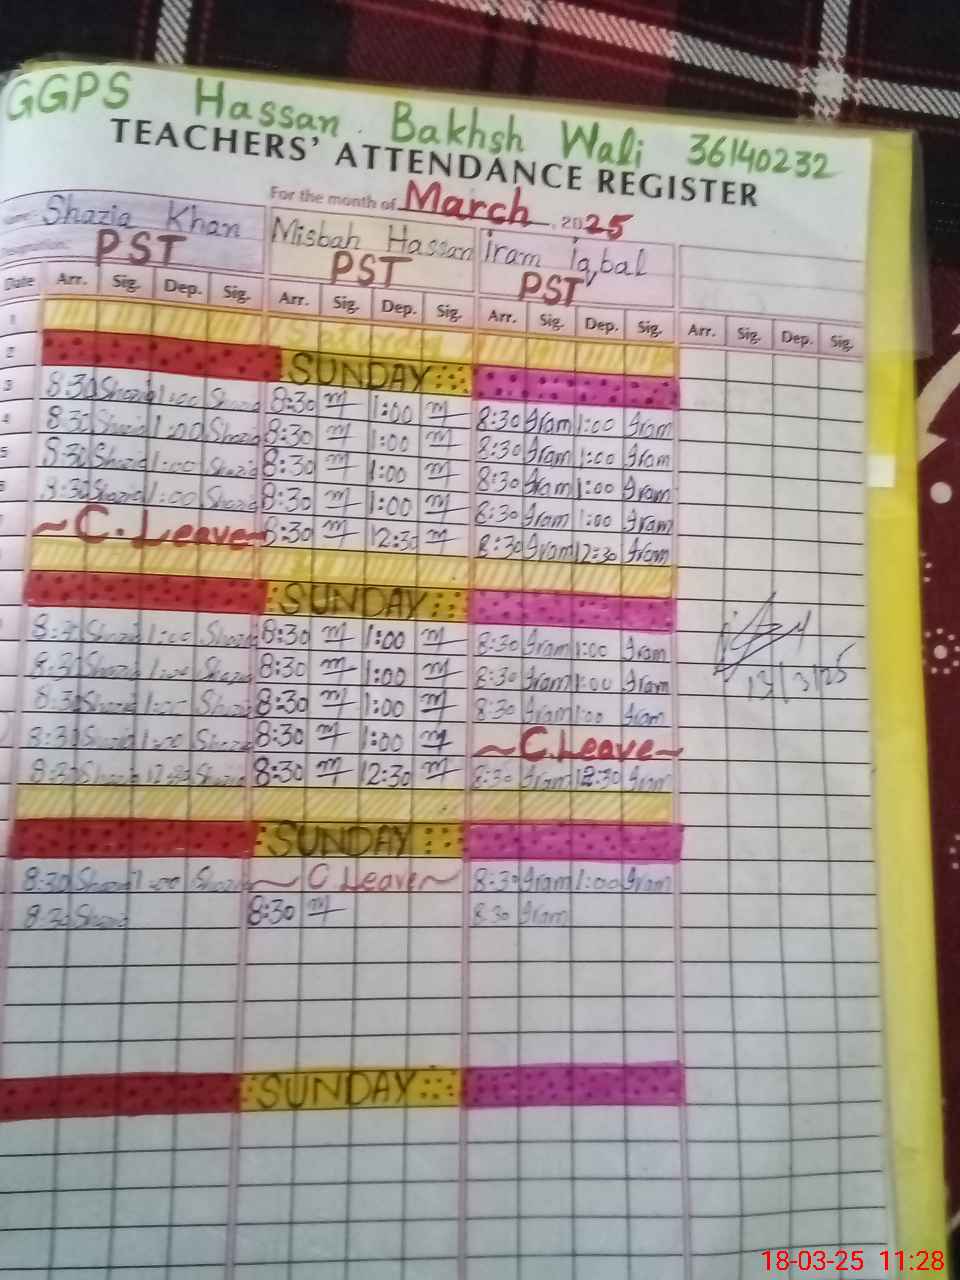 GGPS Hassan Bakhsh Wali 36140232
TEACHERS' ATTENDANCE REGISTER
For the month of March, 2025
Shazia Khan Misbah Hassan Iram iqbal
PST PST PST
Date Arr. Sig. Dep. Sig. Arr. Sig. Dep. Sig. Arr. Sig. Dep. Sig. Arr. Sig. Dep. Sig.
1
2 SUNDAY
3 8:30 Shazia 1:00 Shazia 8:30 m 1:00 m 8:30 Iram 1:00 Iram
4 8:30 Shazia 1:00 Shazia 8:30 m 1:00 m 8:30 Iram 1:00 Iram
5 8:30 Shazia 1:00 Shazia 8:30 m 1:00 m 8:30 Iram 1:00 Iram
8:30 Shazia 1:00 Shazia 8:30 m 1:00 m 8:30 Iram 1:00 Iram
~C.Leave~ 8:30 m 12:30 m 8:30 Iram 12:30 Iram
SUNDAY
8:30 Shazia 1:00 Shazia 8:30 m 1:00 m 8:30 Iram 1:00 Iram
8:30 Shazia 1:00 Shazia 8:30 m 1:00 m 8:30 Iram 1:00 Iram
8:30 Shazia 1:00 Shazia 8:30 m 1:00 m 8:30 Iram 1:00 Iram
8:30 Shazia 1:00 Shazia 8:30 m 1:00 m ~C.Leave~
8:30 Shazia 12:30 Shazia 8:30 m 12:30 m 8:30 Iram 12:30 Iram
13/3/25
SUNDAY
8:30 Shazia 1:00 Shazia ~C Leave~ 8:30 Iram 1:00 Iram
8:30 Shazia 8:30 m 8:30 Iram
SUNDAY
18-03-25 11:28